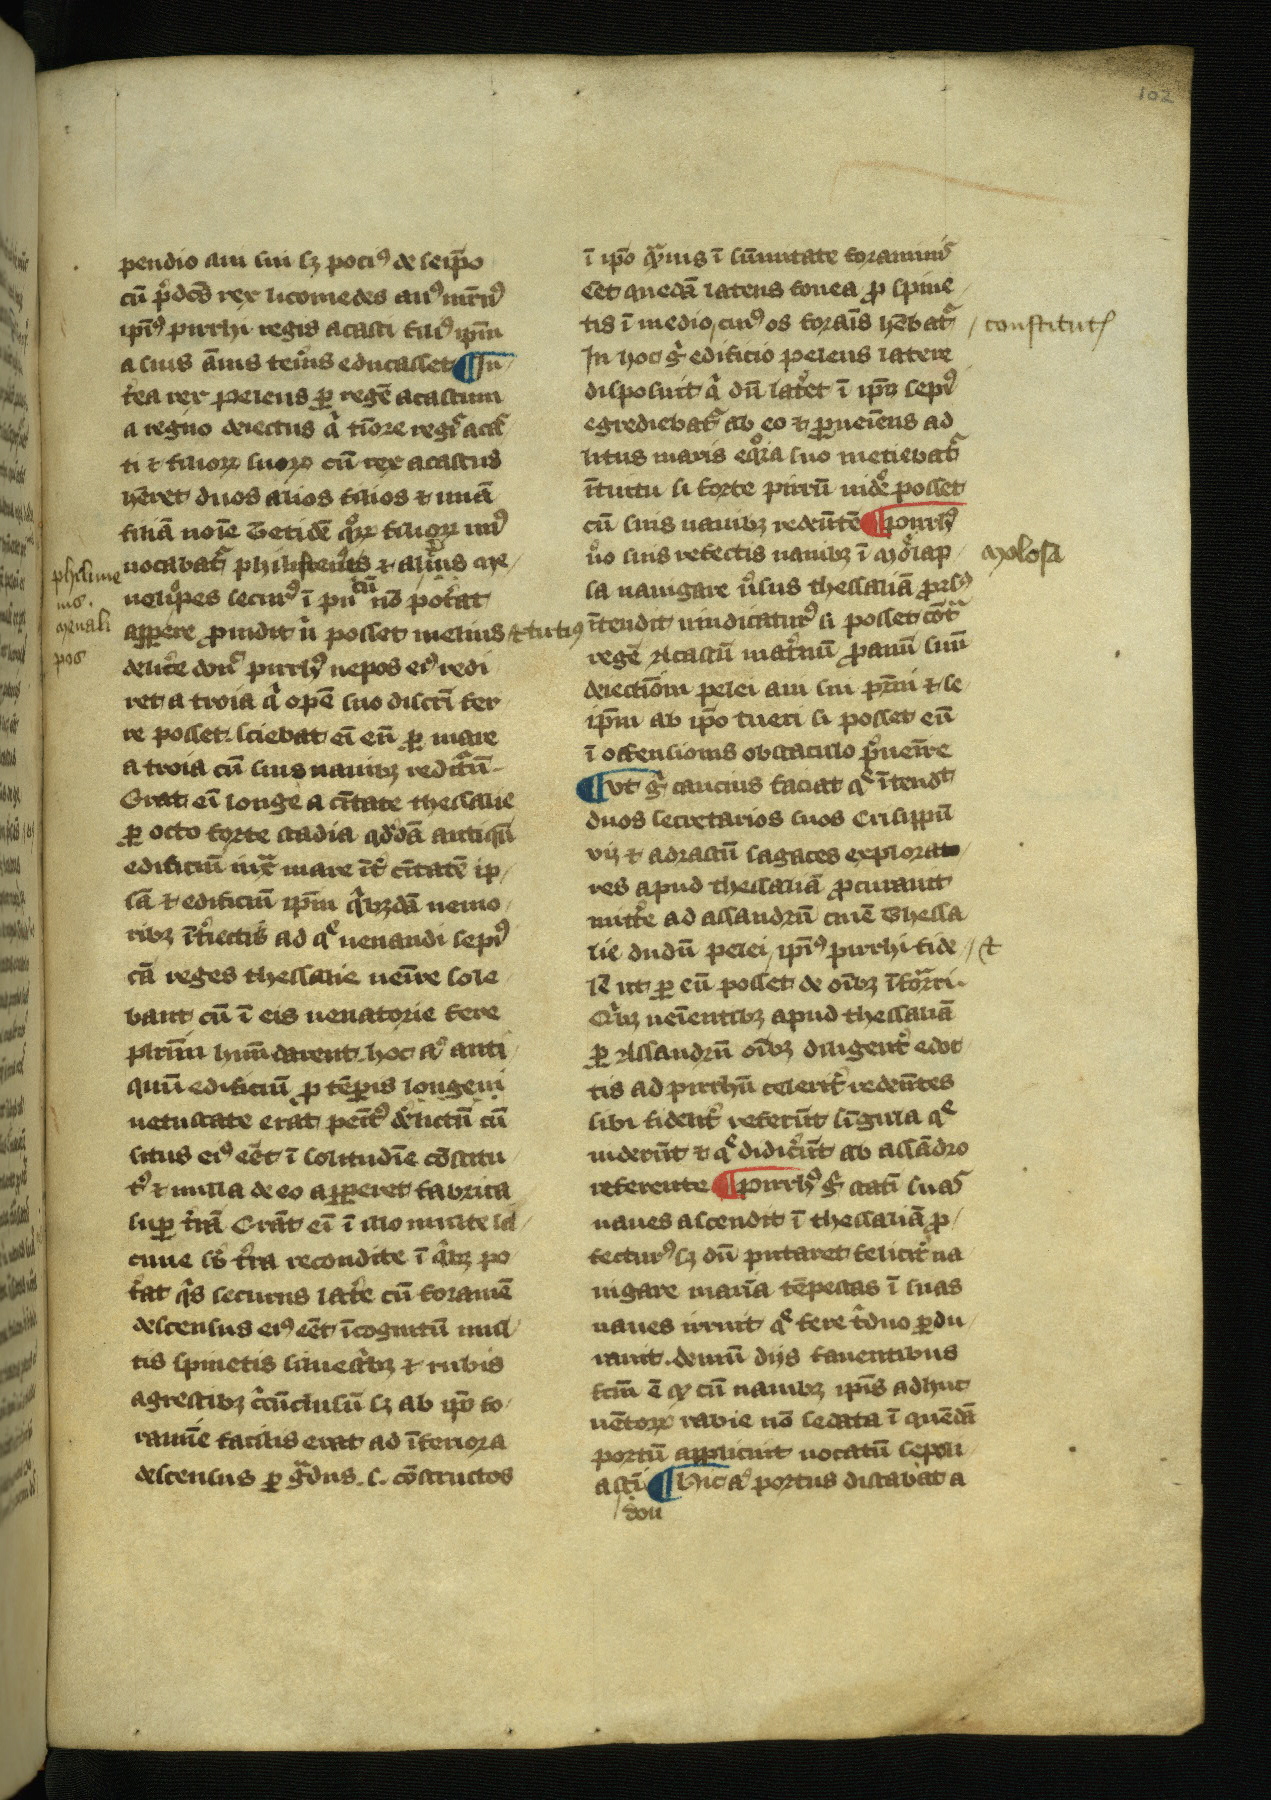 102
pendio aui sui sꝫ pociꝰ de seip̄o
cū p̄dc̄s rex licomedes auꝰ mr̄nꝰ
ip̄iꝰ pirrhi regis acasti filiꝰ ip̄m
a suis ānis ten̄is educasset ¶ In
t̄ea rex peleus ꝑ regē acastum
a regno deiectus q̄ timore regꝭ acas
ti ⁊ filioꝝ suoꝝ cū rex acastus
hēret duos alios filios ⁊ unā
filiā noīe Thetidē qͦꝝ filioꝝ unꝰ
uocabat᷑ philistenes ⁊ alius me
nolipes securꝰ ī
cū
nō pot̄at
apꝑere ꝓuidit ubi posset melius / ⁊ tutiꝰ
delit̄e donc̄ pirrhꝰ nepos eiꝰ redi
ret a troia qͥ opē suo discrī fer
re posset. sciebat eī eū ꝑ mare
a troia cū suis nauibꝫ reditū᷑
Erat eī longe a ciuitate thessalie
ꝑ octo forte stadia qd̄dā antiqū
edificiū iuxͣ mare īt̄ ciuitatē ip
sā ⁊ edificiū ip̄m qͥbꝫdā nemo
ribꝫ īt̄iectis ad qͤ uenandi sepiꝰ
cā reges thessalie ueīre sole
bant cū ī eis uenatorie fere
plrīm hūdarent. hoc aͦ anti
quū edificiū ꝓ tēꝑis longeui
uetustate erat penitꝰ derelictū cū
situs eiꝰ eēt ī solitudīe cōstitu
tꝰ ⁊ nulla de eo apꝑeret fabrica
suꝑ t̄rā Erāt eī ī illo multe la
cune sb̄ t̄ra recondite ī qͥbꝫ po
t̄at qͥs securus lat̄e cū foramē
descensus eiꝰ eēt īcognitū mul
tis spinetis siluestibꝫ ⁊ rubis
agrestibꝫ cͥcūclusū sꝫ ab ip̄o fo
ramīe facilis erat ad īteriora
descensus ꝑ gͣdus. s. cōstructos
phelime
nis.
menali
pos
ī ip̄o qͣuis ī sūmitate foraminis
Eēt quedā latens fouea ꝓ spine
tis ī medio, cuiꝰ os forāis hēbat᷑ / constitutꝭ
In hoc gͦ edificio peleus latere
disposuit qͥ dū lat̄et ī ip̄o sepiꝰ
egrediebat᷑ ab eo ⁊ ꝑueīens ad
litus maris eqͦria suo metiebat᷑
ītuitu si forte pirrū uid̄e posset
cū suis nauibꝫ redeūtē ¶ pirrhꝰ
uͦo suis refectis nauibꝫ ī moͦiap molosa
sa nauigare uͦsus thessaliā ꝓrsꝰ
ītendit uindicatuꝰ si posset cōtͣ
regē Acastū mat̄nū ꝓauū suū
deiectiōm pelei aui sui pr̄ni ⁊ se
ip̄m ab ip̄o tueri si posset eū
ī offensionis obstaculo p̄ueīre
¶ vt gͦ caucius faciat qͤ ītendͭ
duos secretarios suos Crisippū
viꝫ ⁊ adrastū sagaces explorato
res apud thessaliā ꝓcurauit
mitt̄e ad assandrū ciuē Thessa
lie dudū pelei, ip̄iꝰ pirrhi fide / ⁊
lē ut ꝑ eū posset de oībꝫ īformari.
Qͥbꝫ ueīentibꝫ apud thessaliā
ꝑ Assandrū oībꝫ diligent̄ edoc
tis ad pirrhū celerit̄ redeūtes
sibi fident̄ referūt sīgula qͤ
uiderūt ⁊ qͤ didicerūt ab assādro
referente ¶ pirrhꝰ gͦ statī suas
naues ascendit ī thessaliā ꝓ
fecturꝰ sꝫ dū putaret felicit̄ na
uigare marīa tēpestas ī suas
naues irruit qͤ fere tͥduo ꝑdu
rauit. demū dijs fauentibus
fcm̄ ē qͥ cū nauibꝫ ip̄is adhuc
uētoꝝ rabie nō sedata ī quēdā
portū applicuit uocatū sepeli
astī ¶ Hic aͦ portus distabat a
dou